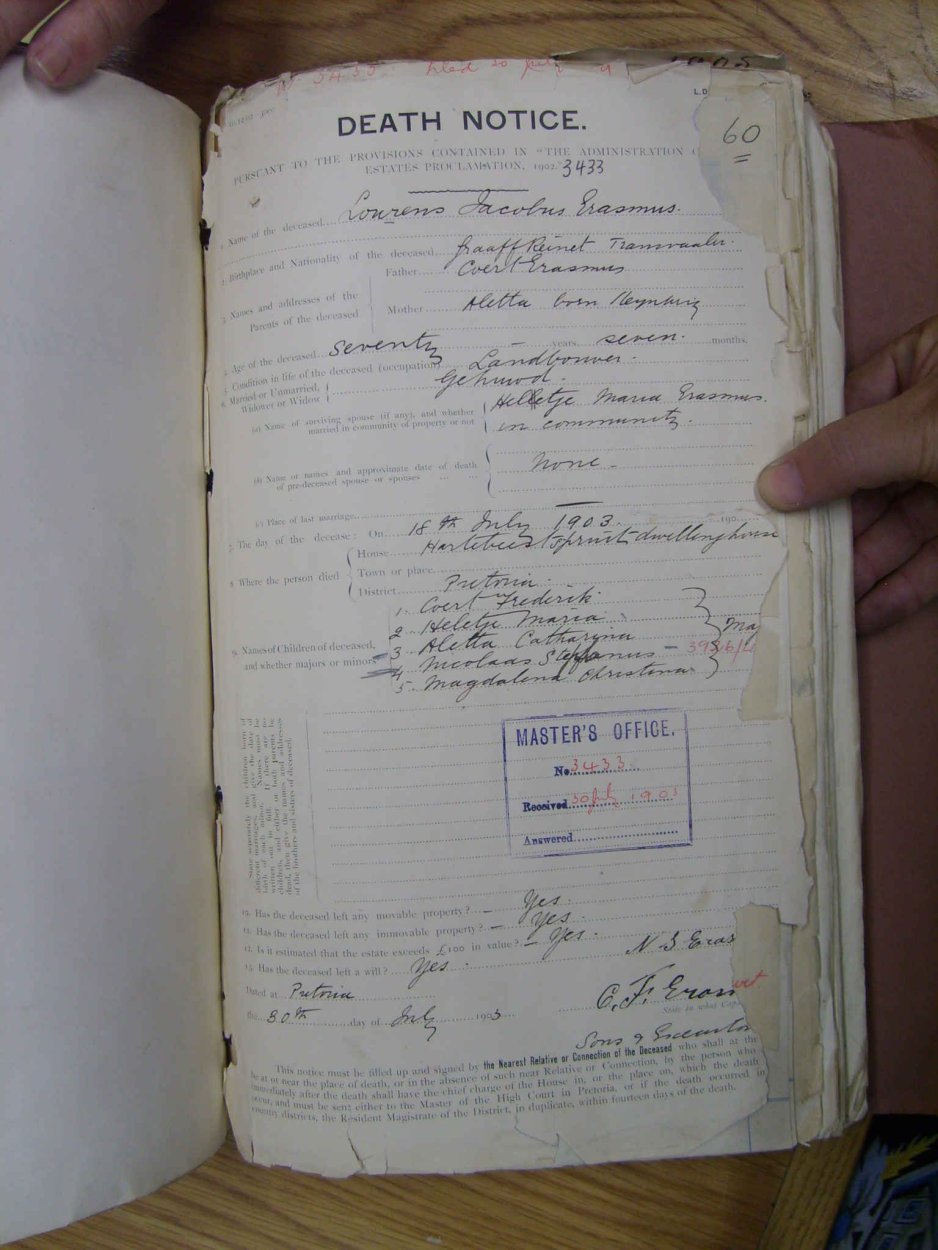 3433 filed 30 July
1903
L.D.
60
DEATH NOTICE.
PURSUANT TO THE PROVISIONS CONTAINED IN "THE ADMINISTRATION O
ESTATES PROCLAMATION, 1902. 3433
1. Name of the deceased Lourens Jacobus Erasmus.
2. Birthplace and Nationality of the deceased Graaff Reinet Transvaaler.
3. Names and addresses of the Parents of the deceased
Father Coert Erasmus
Mother Aletta born Heynburg
Age of the deceased Seventy years, seven months.
5. Condition in life of the deceased (occupation) Landbouwer.
6. Married or Unmarried, Widower or Widow Gehuwd.
(a) Name of surviving spouse (if any), and whether married in community of property or not Helletje Maria Erasmus.
in community.
(b) Name or names and approximate date of death of pre-deceased spouse or spouses None
(c) Place of last marriage
7. The day of the decease: On 18th July 1903. 190
8. Where the person died
House Hartebeestspruit dwellinghouse
Town or place
District Pretoria.
9. Names of Children of deceased, and whether majors or minors
1. Coert Frederik
2 Heletje Maria
3 Aletta Catharyna
4 Nicolaas Stefanus
5. Magdalena Christina
Maj
State separately the children born of
different marriages, and give the date of
birth of each minor. Names must be
written out in full. If there are no
children, and either or both parents be
dead, then give the names and addresses
of the brothers and sisters of deceased.
MASTER'S OFFICE.
No. 3433
Received 30 July 1903
Answered
10. Has the deceased left any movable property? — Yes.
11. Has the deceased left any immovable property? — Yes.
12. Is it estimated that the estate exceeds £100 in value? — Yes.
13. Has the deceased left a will? Yes.
N S Eras
Dated at Pretoria
C. F. Eras
State in what Cap
the 30th day of July 1903
Sons & Executo
This notice must be filled up and signed by the Nearest Relative or Connection of the Deceased who shall at the
be at or near the place of death, or in the absence of such near Relative or Connection, by the person who
immediately after the death shall have the chief charge of the House in, or the place on, which the death
occur, and must be sent either to the Master of the High Court in Pretoria, or if the death occurred in
country districts, the Resident Magistrate of the District, in duplicate, within fourteen days of the death.